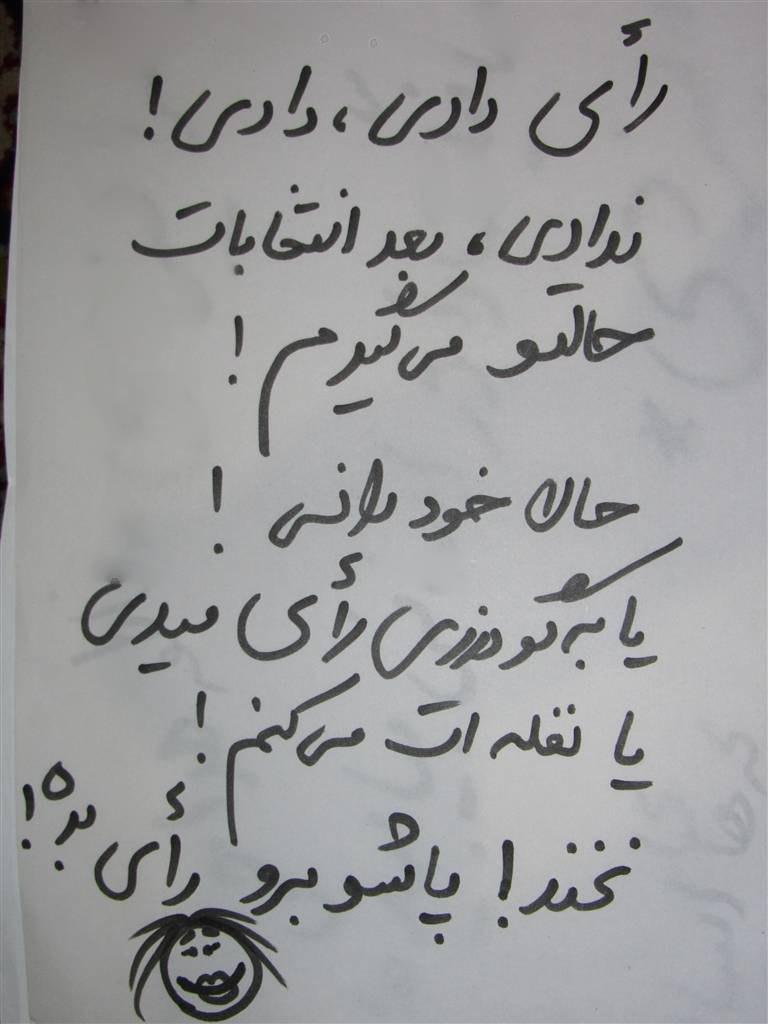 رأی دادی، دادی!
ندادی، بعد انتخابات
حالتو می‌گیرم!
حالا خود دانی!
یا به گودرزی رأی میدی
یا نفله‌ات می‌کنم!
نخند! پاشو برو رأی بده!